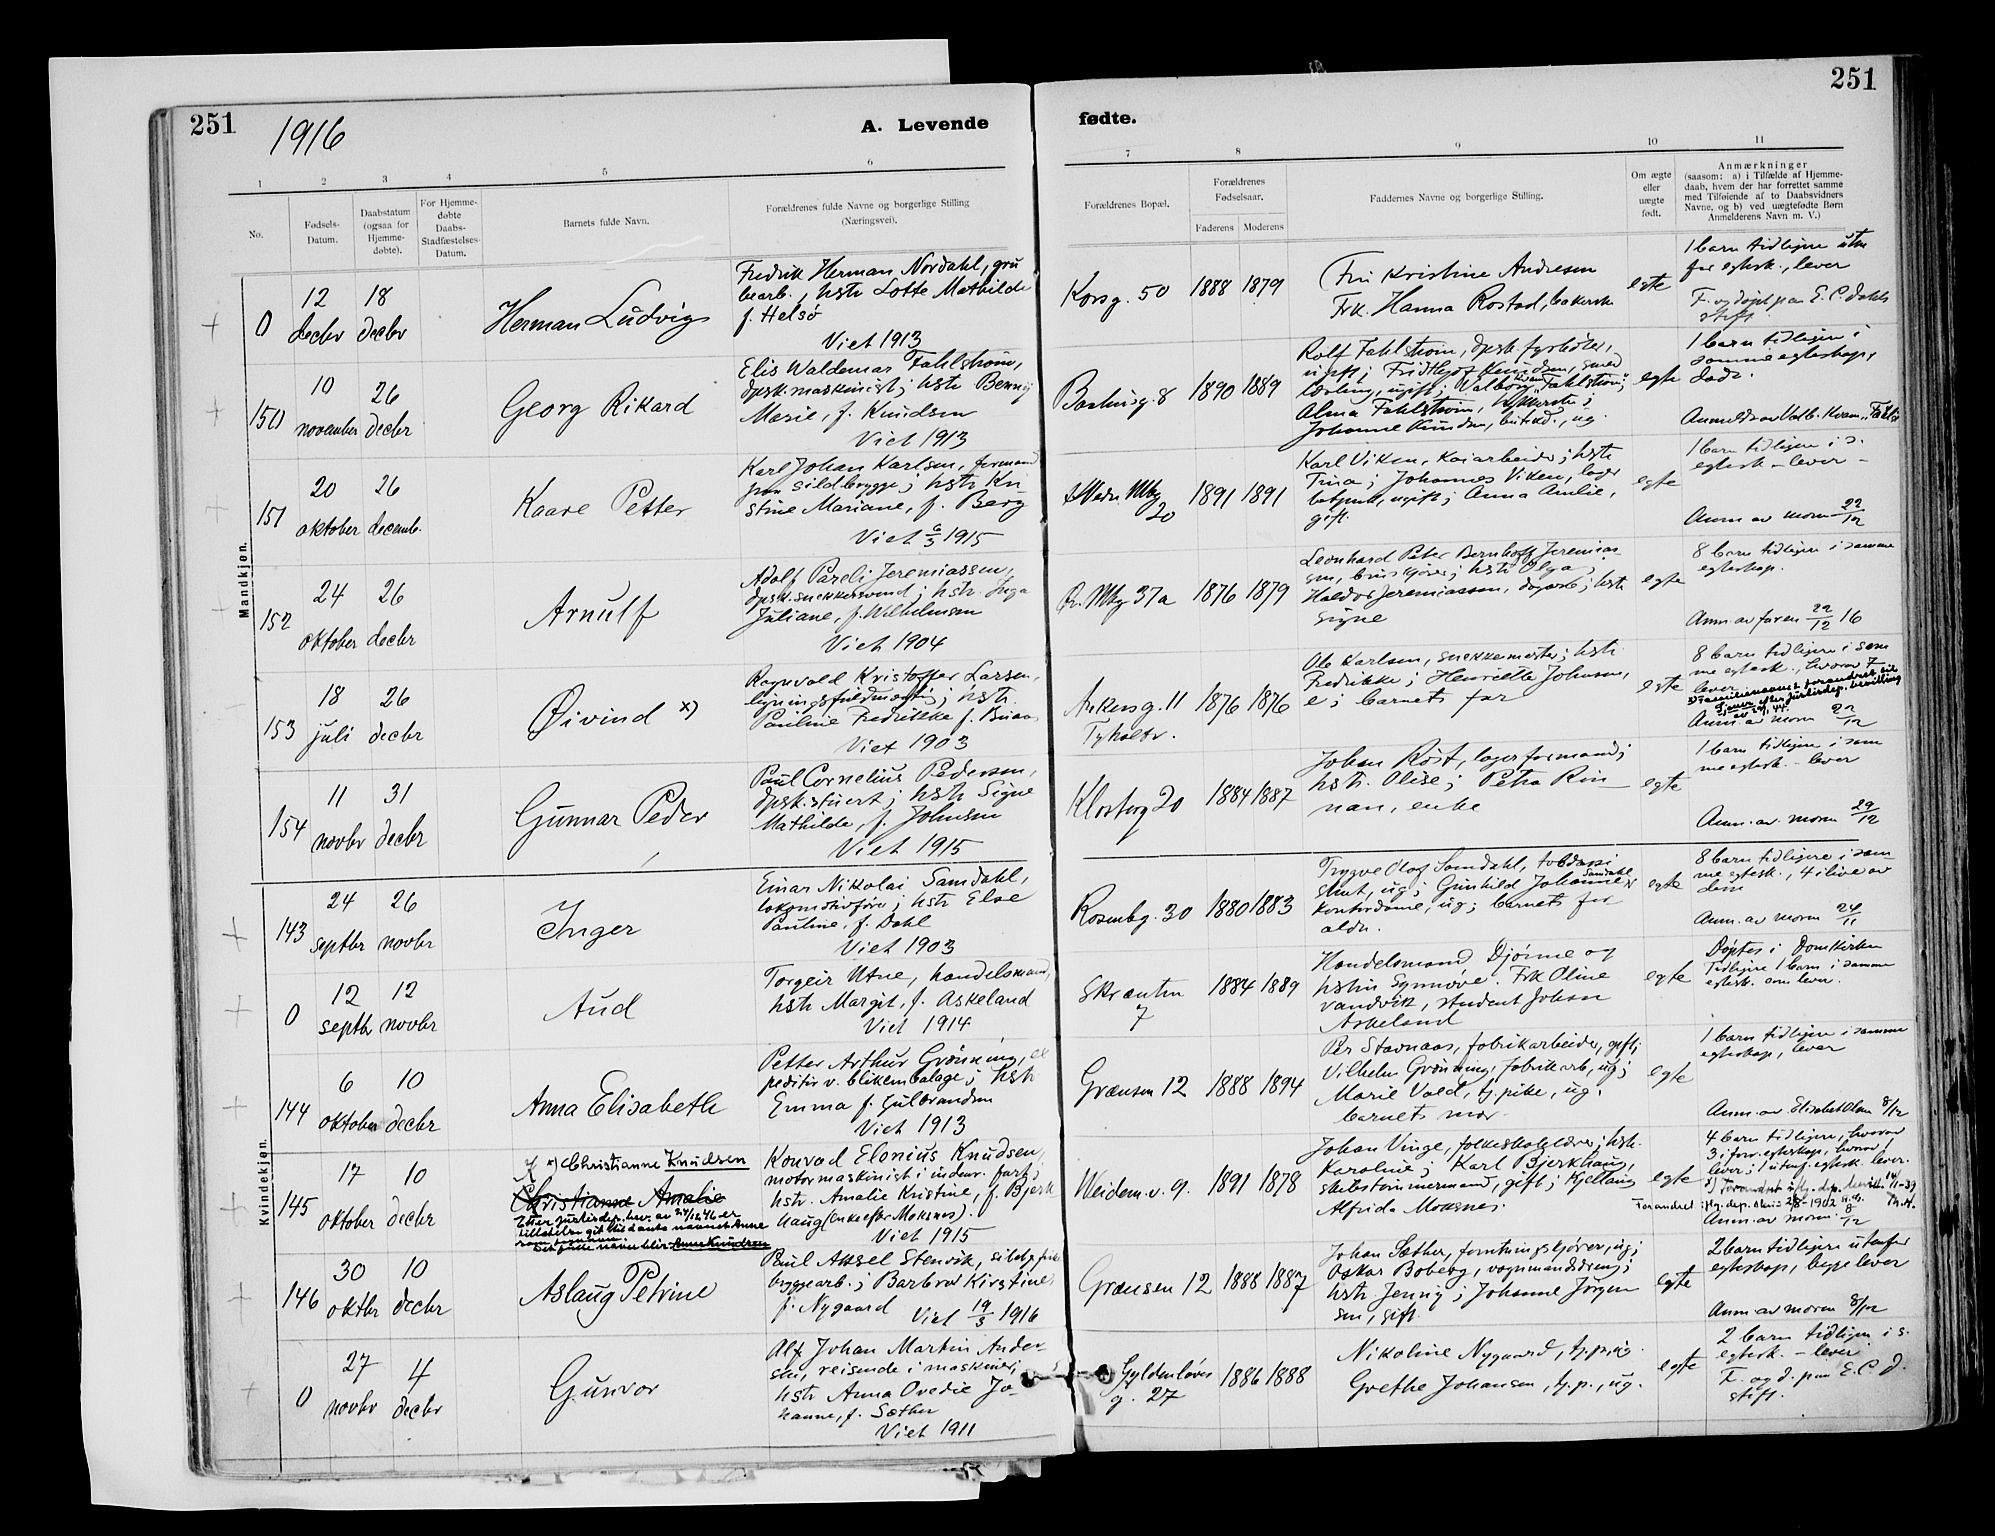 251
1916
A. Levende
fødte.
251
1
2
3
4
5
6
7
8
9
10
11
No.
Fødsels-
Datum.
Daabstatum
(ogsaa for
Hjemme-
døbte).
For Hjemme-
døbte
Daabs-
Stadfæstelses-
Datum.
Barnets fulde Navn.
Forældrenes fulde Navne og borgerlige Stilling
(Næringsvei).
Forældrenes Bopæl.
Forældrenes
Fødselsaar.
Faderens
Moderens
Faddernes Navne og borgerlige Stilling.
Om ægte
eller
uægte
født.
Anmærkninger
(saasom: a) i Tilfælde af Hjemme-
daab, hvem der har forrettet samme
med Tilføiende af to Daabsvidners
Navne, og b) ved uægtefødte Børn
Anmelderens Navn m. V.)
Mandkjøn.
0
12
decbr
18
decbr
Herman Ludvig
Fredrik Herman Nordahl, gru
bearb., hstr Lotte Mathilde
f. Helsø
Viet 1913
Korsg. 50
1888
1879
Fru Kristine Andresen
Frk. Hanna Rostad,
egte
1 barn tidligere utn
for egtesk., lever
F. og døpt paa E. C. Dahls
stift.
150
10
november
26
decbr
Georg Rikard
Elis Waldemar Fahlstrøm,
dpsk.maskinist; hstr Benny
Marie, f. Knudsen
Viet 1913
Baahusg. 8
1890
1889
Rolf Fahlstrøm, dpsk. fyrbøter,
ugift; Fridtjof Knudsen, smed
lærling, ugift; Valborg Kvam "Fahlstrøm";
Alma Fahlstrøm,
Johanne Knudsen, butikd., ug.
egte
1 barn tidligere i
samme egteskap,
død.
Anmeldt av Valb. Kvam "Fahlst
151
20
oktober
26
decemb.
Kaare Petter
Karl Johan Karlsen, formand
paa sildbrygge; hstr Kri
stine Mariane, f. Berg
Viet 6/3 1915
Nedre Mbg
20
1891
1891
Karl Viken, kaiarbeider; hstr
Trina; Johannes Viken, lager
betjent, ugift; Anna Amlie,
gift.
egte
1 barn tidligere i s.
egtesk – lever –
Anm. av moren 22/12
152
24
oktober
26
decbr
Arnulf
Adolf Pareli Jeremiassen,
dpsk.snekkersvend; hstr Inga
Juliane, f. Wilhelmsen
Viet 1904
Ø. Mbg 37a
1876
1879
Leonhard Peter Bernhoff Jeremias-
sen, hstr Olga;
Haldor Jeremiassen, hstr
Signe
egte
8 barn tidligere i samme
egteskap.
Anm. av faren 22/12 16
153
18
juli
26
decbr
Øivind x)
Ragnvald Kristoffer Larsen,
ligningsfuldmægtig; hstr
Pauline Fredrikke f. Bruaas
Viet 1903
Ankersg. 11
Tyholtv.
1876
1876
Ole Karlsen, snekkermester; hstr
Fredrikke; Henriette Johnsen,
e; barnets far
egte
8 barn tidligere i sam
me egtesk., hvorav 7
lever
x) Familienavnet forandret til
efter Justisdep. bevilling
Anm. av moren 22/12
154
11
novbr
31
decbr
Gunnar Peder
Paul Cornelius Pedersen,
dpsk.stuert; hstr Signe
Mathilde, f. Johnsen
Viet 1915
Klosterg 20
1884
1887
Johan Røst, lagerformand;
hstr. Olise; Petra Rin
nan, enke
egte
1 barn tidligere i sam
me egtesk. – lever
Anm. av. moren 29/12
Kvindekjøn.
143
24
septbr
26
novbr
Inger
Einar Nikolai Samdahl,
lokomotivfører; hstr Else
Pauline, f. Dahl
Viet 1903
Rosenbg. 30
1880
1883
Trygve Olaf Samdahl, toldassi
stent, ug; Gunhild Johanne Samdahl,
kontordame, ug; barnets for
ældr.
egte
8 barn tidligere i sam
me egtesk., 4 i live av
dem
Anm. av moren 24/11
0
12
septbr
12
novbr
Aud
Torgeir Utne, handelsmand,
hstr Margit, f. Askeland
Viet 1914
Skrænten
7
1884
1889
Handelsmand Djønne og
hstru Synnøve. Frk Oline
Vandvik, student Johan
Askeland
egte
Døptes i Domkirken
Tidligere 1 barn i samme
egtesk. som lever.
144
6
oktober
10
decbr
Anna Elisabeth
Petter Arthur Grønning, ex
peditør v. blikemballage; hstr
Emma f. Gulbrandsen
Viet 1913
Grænsen 12
1888
1894
Per Stavnaas, fabrikarbeider, gift;
Vilhelm Grønning, fabrikarb, ug;
Marie Vold, tj.pike, ug.
barnets mor
egte
1 barn tidligere i samme
egteskap, lever
Anm. av Elisabet Olsen 8/12
145
17
oktober
10
decbr
x) Christianne Knudsen
Christianne Amalie
Etter Justisdep. bev. av 24/10 46 er
tillatelse git til å anta navnet Anne
som fornavn
Det fulle navn blir Anne Knudsen
Konrad Elonius Knudsen,
motormaskinist i indenr. fart;
hstr. Amalie Kristine, f. Bjerk
haug (enke efter Moksnes).
Viet 1915
Weidem.v. 9.
1891
1878
Johan Vinge, folkeskolelærer; hstr.
Karoline; Karl Bjerkhaug,
skibstømmermand, gift; Kjellaug
Alfrida Moksnes.
egte
4 barn tidligere, hvorav
3 i forr. egteskap, hvorav 1
lever; 1 utenf. egtesk. lever.
Forandret
Anm. av moren 8/12
146
30
oktbr
10
decbr
Aslaug Petrine
Paul Aksel Stenvik,
bryggearb.; Barbro Kirstine
f. Nygaard
Viet 19/3 1916
Grænsen 12
1888
1887
Johan Sæther, forretningskjører, ug;
Oskar Boberg, vognmandsdreng;
hstr Jenny; Johanne Jørgen
sen, gift.
egte
2 barn tidligere utenfor
egteskap, begge lever
Anm. av moren 8/12
0
27
novbr
4
decbr
Gunvor
Alf Johan Martin Ander-
sen, reisende i maskiner;
hstr Anna Ovedie Jo-
hanne, f. Sæther
Viet 1911
Gyldenløves
g. 27
1886
1888
Nikoline Nygaard, tj.p., ug.
Grethe Johansen, tj.p., ug.
egte
2 barn tidligere i s.
egtesk. – lever
F. og d. paa E. C. D.
stift.